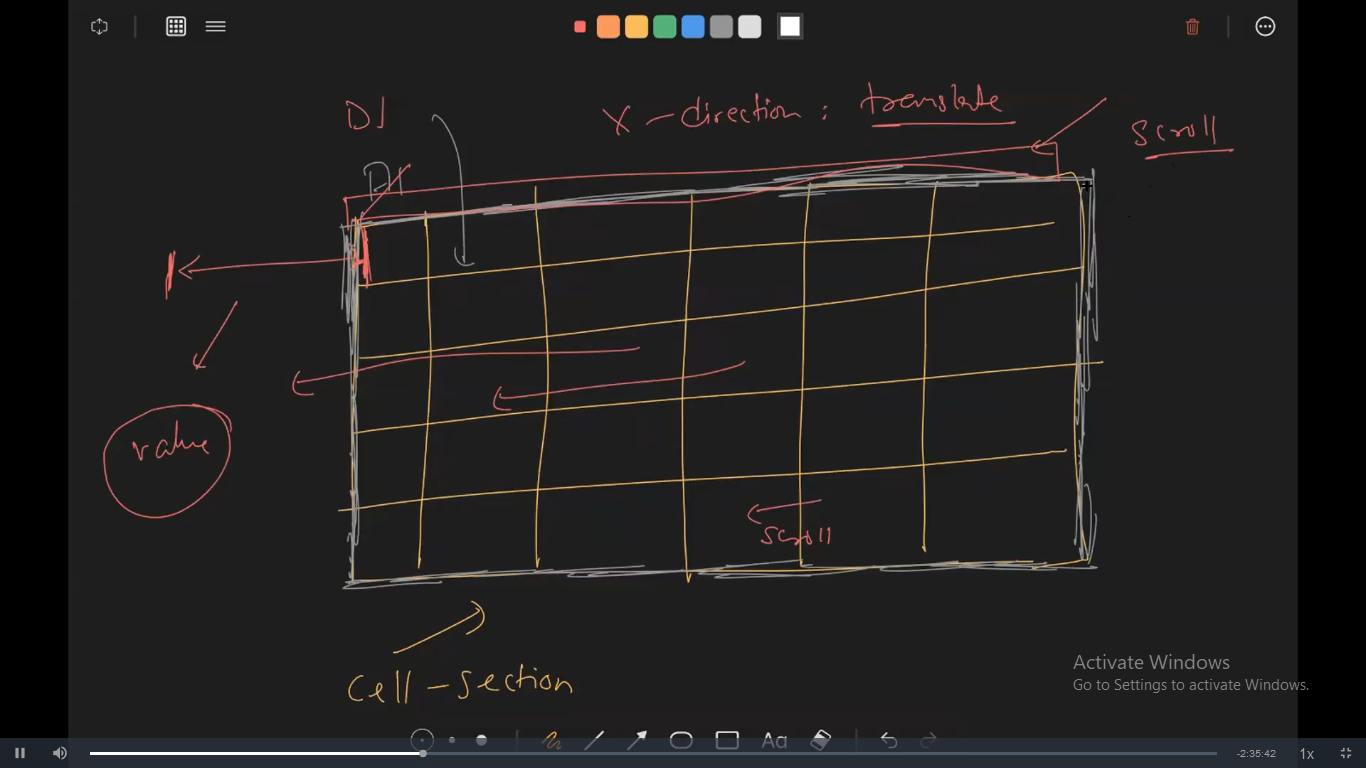 DI
X - direction : translate
Scroll
value
Scroll
Cell - Section
Activate Windows
Go to Settings to activate Windows.
Aa
-2:35:42
1x